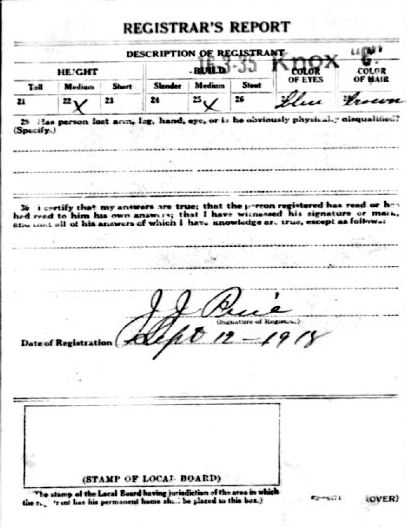 REGISTRAR'S REPORT
DESCRIPTION OF REGISTRANT
16-3-35 Knox "C"
HEIGHT BUILD COLOR OF EYES COLOR OF HAIR
Tall Medium Short Slender Medium Stout
21 22 X 23 24 25 X 26 27 Blue 28 Brown
29 Has person lost arm, leg, hand, eye, or is he obviously physically disqualified?
(Specify.)
30 I certify that my answers are true; that the person registered has read or has
had read to him his own answers; that I have witnessed his signature or mark,
and that all of his answers of which I have knowledge are true, except as follows:
J J
(Signature of Registrar)
Date of Registration Sept 12-1918
(STAMP OF LOCAL BOARD)
The stamp of the Local Board having jurisdiction of the area in which
the registrant has his permanent home shall be placed in this box.)
(OVER)